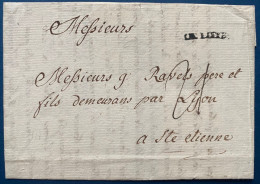 Messieurs
Messieurs g Ravels pere et
fils demeurans par Lyon
a Ste etienne